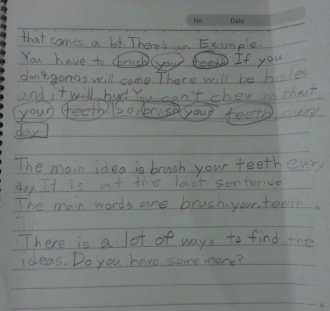 No. Date
that comes a lot. There's an Example.
You have to brush your teeth If you
don't, gonos will come There will be holes
and it will hurt You can't chew without
your teeth So, brush your teeth every
day.
The main idea is brush your teeth every
day It is at the last sentence
The main words are brush, your, teeth.
There is a lot of ways to find the
ideas. Do you have some more?